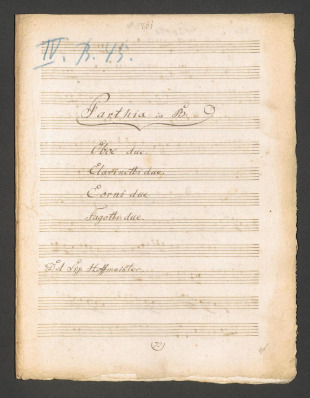 IV. B. 45.
Parthia in
Oboe due
Clarinetti due
Corni due
Fagotti due
Del Sig Hoffmeister